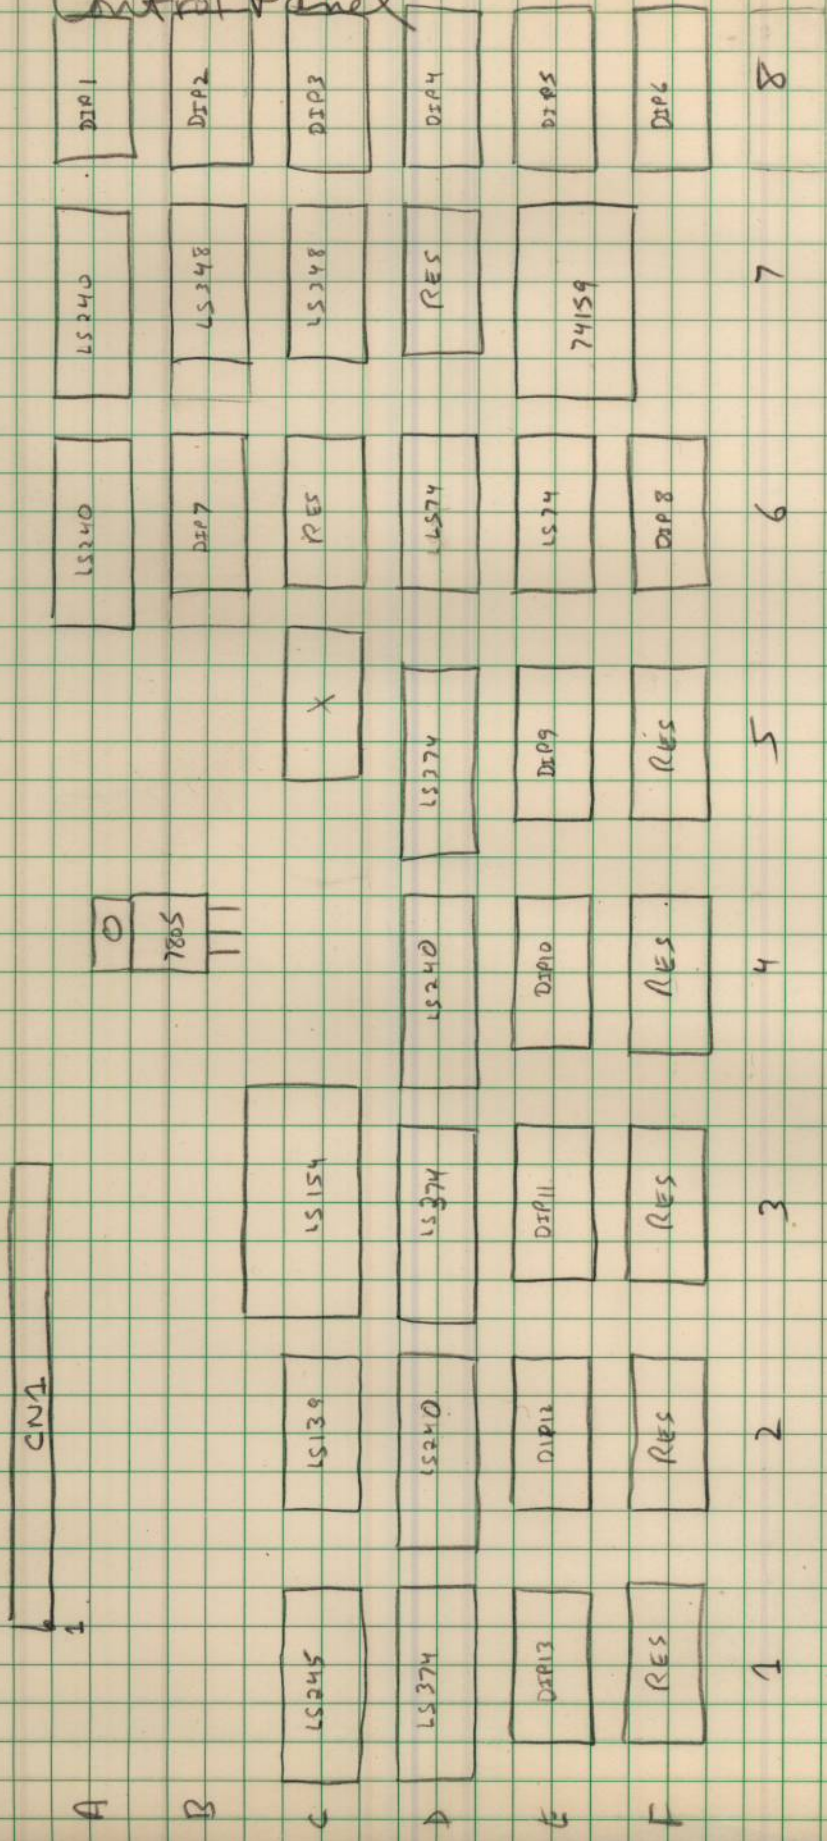 Control Panel
CN1
1
A LS240 LS240 DIP1
7805
B DIP7 LS348 DIP2
C LS245 LS139 LS154 X RES LS348 DIP3
D LS374 LS240 LS374 LS240 LS374 LS74 RES DIP4
E DIP13 DIP12 DIP11 DIP10 DIP9 LS74 74159 DIP5
F RES RES RES RES RES DIP8 DIP6
1 2 3 4 5 6 7 8